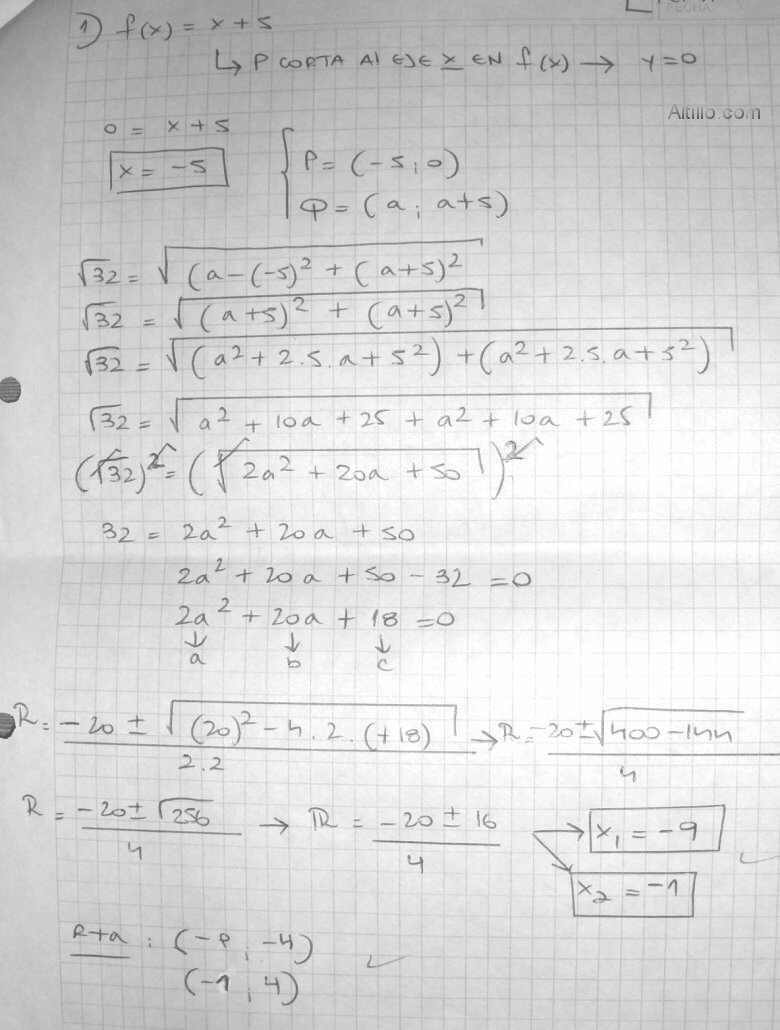 FECHA
1) f(x) = x + 5
↳ P CORTA Al EJE x EN f(x) → y = 0
Altillo.com
0 = x + 5
x = -5
P = (-5; 0)
Q = (a; a+5)
√32 = √(a-(-5)² + (a+5)²
√32 = √(a+5)² + (a+5)²
√32 = √(a² + 2.5.a + 5²) + (a² + 2.5.a + 5²)
√32 = √a² + 10a + 25 + a² + 10a + 25
(√32)² = (√2a² + 20a + 50)²
32 = 2a² + 20a + 50
2a² + 20a + 50 - 32 = 0
2a² + 20a + 18 = 0
↓ ↓ ↓
a b c
R = -20 ± √(20)² - 4.2.(+18) / 2.2 → R = -20 ± √400 - 144 / 4
R = -20 ± √256 / 4 → R = -20 ± 16 / 4
x₁ = -9
x₂ = -1
Rta : (-9; -4)
(-1; 4)